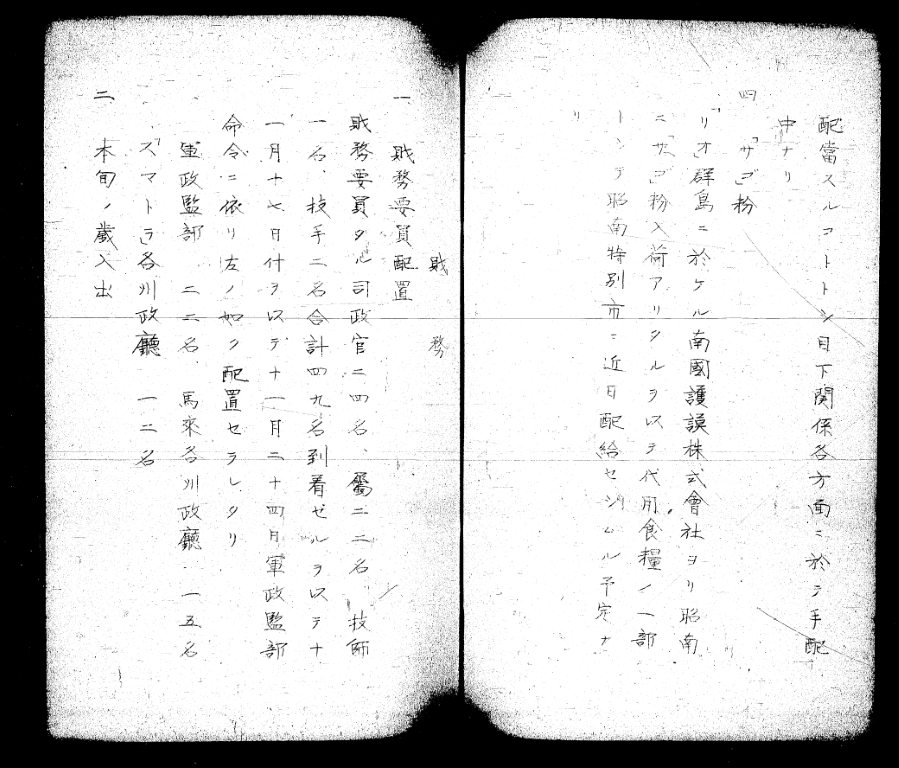 配當スルコトトシ目下關係各方面ニ於テ手配
中ナリ
四 「サゴ」粉
「リオ」群島ニ於ケル南國護謨株式會社ヨリ昭南
ニ「サゴ」粉入荷アリタルヲ以テ代用食糧ノ一部
トシテ昭南特別市ニ近日配給セシムル予定ナ
リ
財務
一 財務要員配置
財務要員タル司政官二四名、屬二二名、技師
一名、技手二名合計四九名到着セルヲ以テ十
一月十七日付ヲ以テ十一月二十四日軍政監部
命令ニ依リ左ノ如ク配置セラレタリ
軍政監部 二二名 馬來各州政廳 一五名
「スマトラ」各州政廳 一二名
二 本旬ノ歲入出